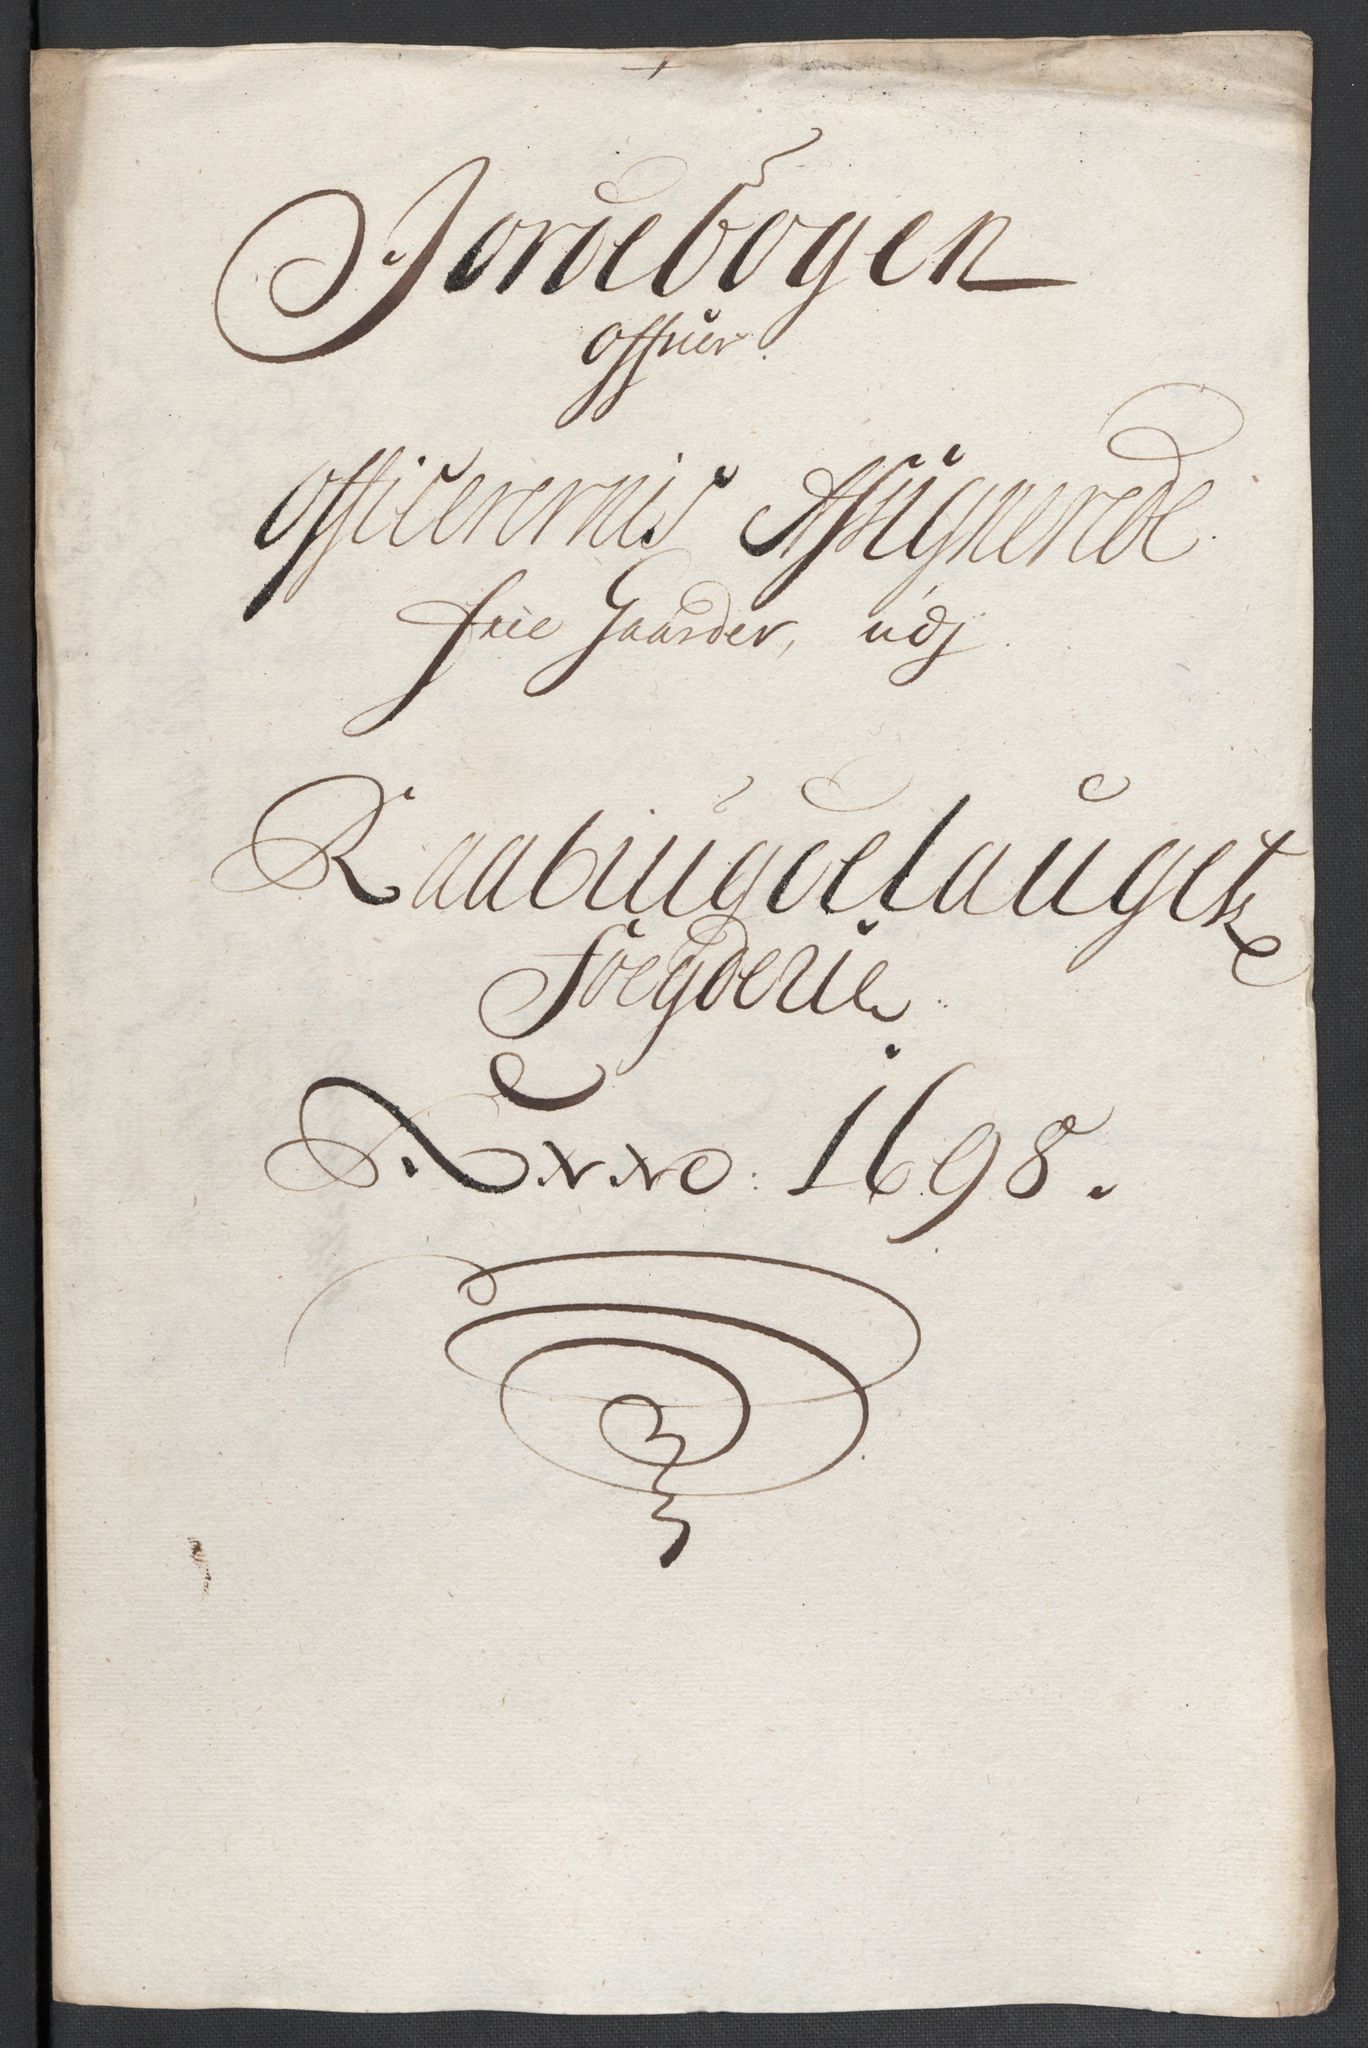 Jordebogen
offuer
officerernis Assignerede
frie Gaarder, udj
Raabiugdelauget
Foegderie
Anno: 1698.